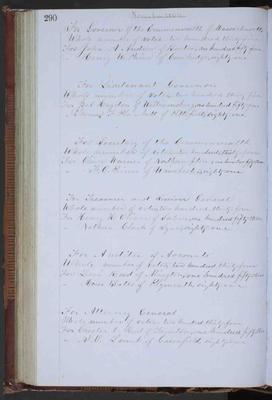 290
For Governor of the Commonwealth of Massachusetts
Whole number of votes two hundred thirty five
For John A. Andrew of Boston, one hundred fifty four
" Henry W. Paine of Cambridge, eighty one
For Lieutenant Governor
Whole number of votes two hundred thirty five
For Joel Hayden of Williamsburg, one hundred fifty
" Thomas F. Plunkett of Pittsfield, eighty one
For Secretary of the Commonwealth
Whole number of votes two hundred thirty four
For Oliver Warner of Northampton, one hundred fifty three
" F. O. Prince of Winchester, eighty one
For Treasurer and Receiver General
Whole number of votes two hundred thirty four
For Henry K. Oliver of Salem, one hundred fifty three
" Nathan Clark of Lynn, eighty one
For Auditor of Accounts
Whole number of votes two hundred thirty four
For Levi Reed of Abington, one hundred fifty three
" Moses Bates of Plymouth, eighty one
For Attorney General
Whole number of votes two hundred thirty four
For Chester I. Reed of Taunton, one hundred fifty three
of Greenfield, eighty one